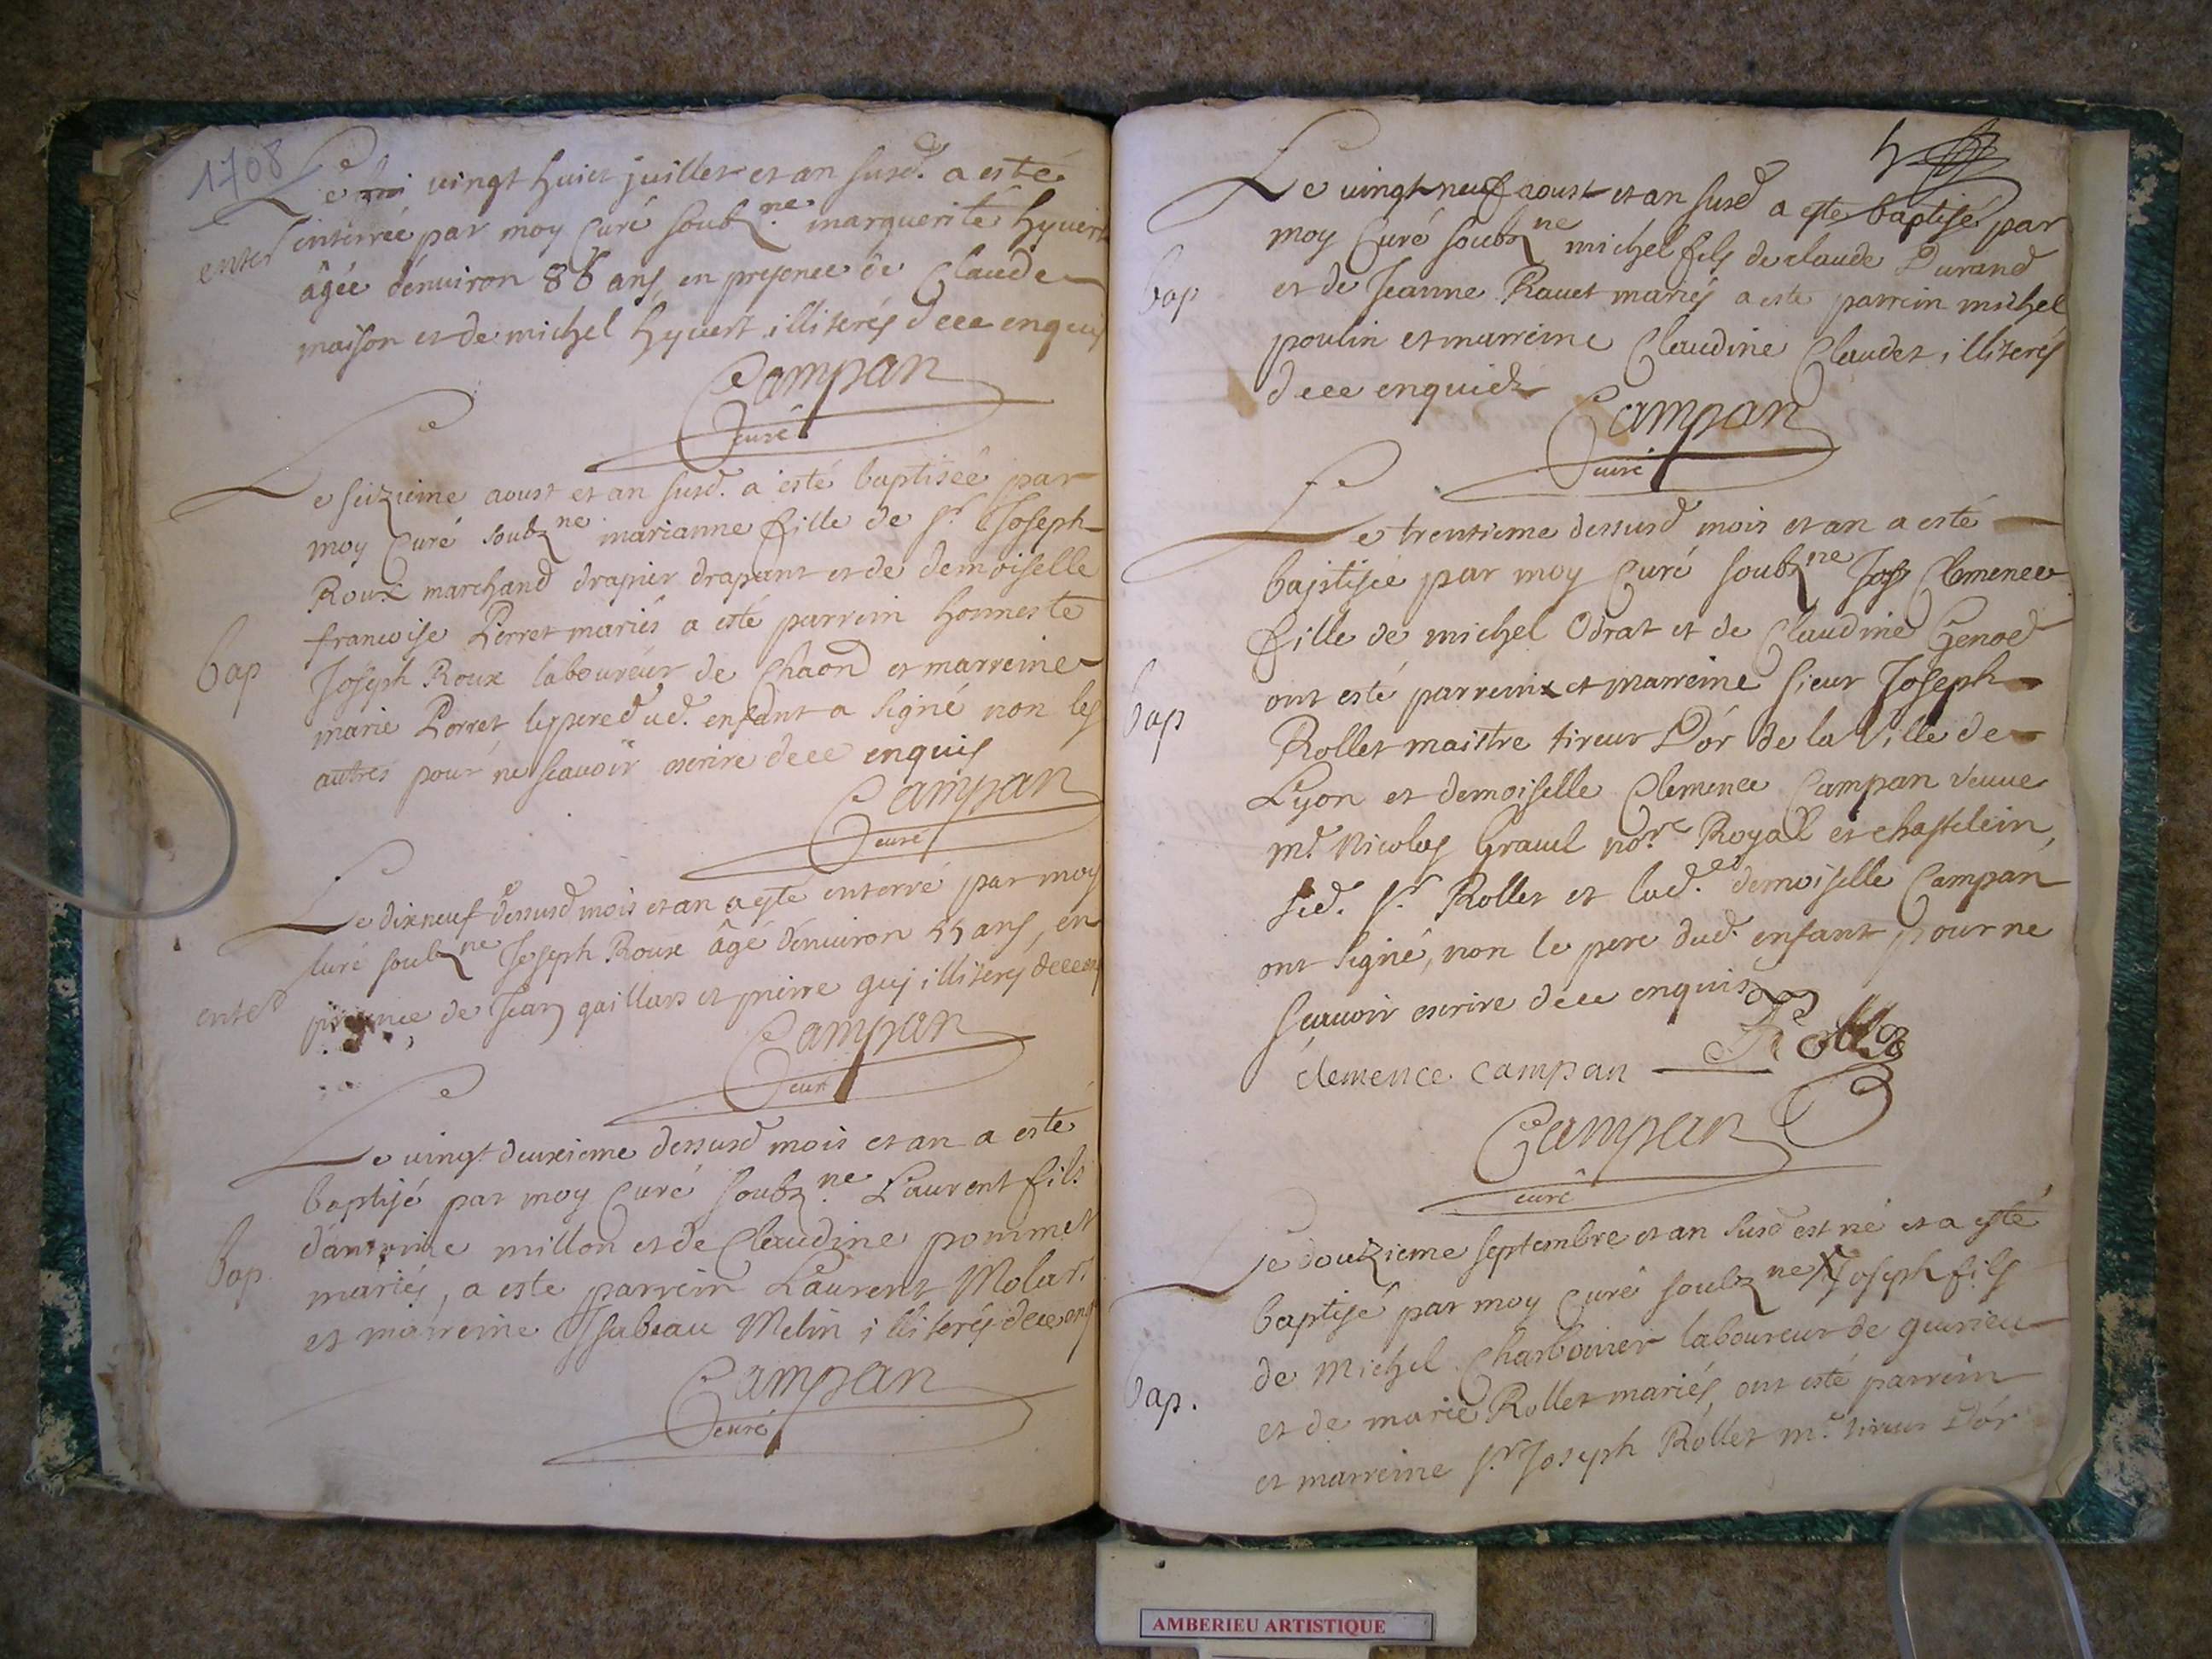 1708
Le vingt huict juillet et an susd. a esté
enter
interrée par moy Curé soubz.ne marguerite hyvert
âgée d'environ 86 ans, en presence de Claude
maison et de michel hyvert illiterés dece enquis
Campan
curé
Le seizieme aoust et an susd. a esté baptisée par
moy Curé soubzne marianne fille de sr. Joseph
Roux marchand drapier drapant et de demoiselle
francoise Perret mariés a esté parrein honneste
bap
Joseph Roux laboureur de Chaond et marreine
marie Porret le pere dud. enfant a signé non les
autres pour ne scavoir escrire dece enquis
Campan
curé
Le dixneuf dessusd mois et an a esté enterré par moy
Curé soubzne Joseph Roux âgé d'environ 55 ans, en
enter
presence de Jean gaillars et pierre guy illiterés dece enq
Campan
curé
Le vingt deuxieme dessusd mois et an a esté
baptisé par moy Curé soubz.ne Laurent fils
d'antoine millon et de Claudine pommet
bap
mariés, a este parrein Laurent Molar
et marreine Isabeau Melin illiterés dece enq
Campan
curé
Le vingt neuf aoust et an susd a este baptisé par
moy Curé soubzne michel fils de claude Durand
bap
et de Jeanne Ravet mariés a este parrein michel
poulin et marreine Claudine Claudet illiterés
dece enquids
Campan
curé
Le trentieme dessusd mois et an a esté
baptisée par moy Curé soubzne Clemence
fille de michel Odrat et de Claudine Genod
ont esté parrein et marreine sieur Joseph
bap
Rollet maistre tireur D'or de la Ville de
Lyon et demoiselle Clemence Campan veuve
mr. Nicolas Gravel nore. Royal et chastelein,
led. sr. Rollet et lad. demoiselle Campan
ont signé, non le pere dud. enfant pour ne
scavoir escrire dece enquis
clemence campan Rollet
Campan
curé
Le douzieme septembre et an susd est né et a esté
baptisé par moy curé soubzne Joseph fils
de Michel Charbonier laboureur de gurieu
bap.
et de marie Rollet mariés, ont esté parrein
et marreine sr. Joseph Rollet me. tireur D'or
AMBERIEU ARTISTIQUE